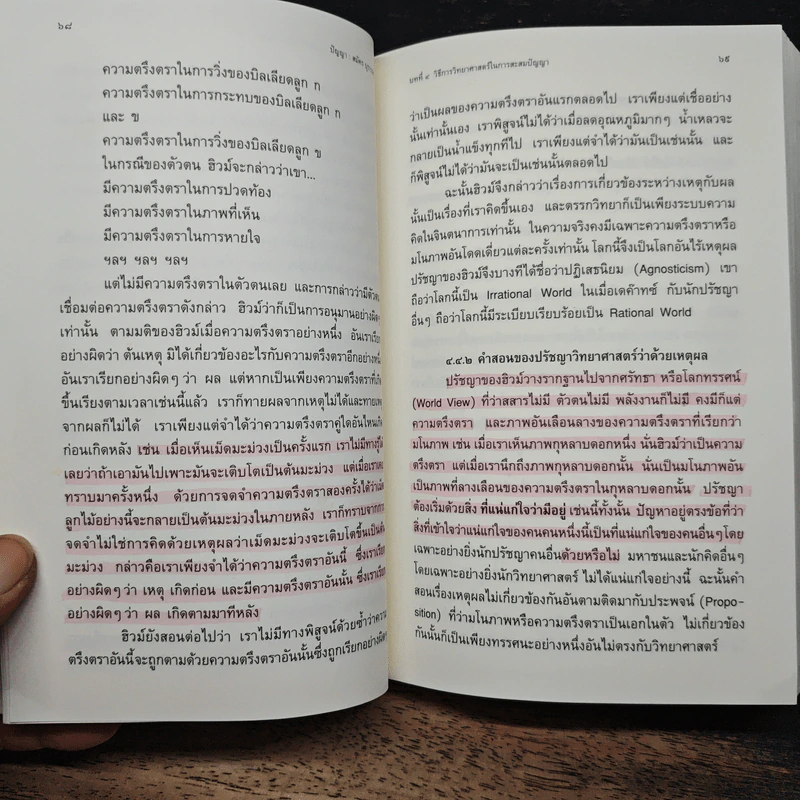 ๖๘
ปัญญา : สมัคร
ความตรึงตราในการวิ่งของบิลเลียดลูก ก
ความตรึงตราในการกระทบของบิลเลียดลูก ก
และ ข
ความตรึงตราในการวิ่งของบิลเลียดลูก ข
ในกรณีของตัวตน ฮิวม์จะกล่าวว่าเขา...
มีความตรึงตราในการปวดท้อง
มีความตรึงตราในภาพที่เห็น
มีความตรึงตราในการหายใจ
ฯลฯ ฯลฯ ฯลฯ
แต่ไม่มีความตรึงตราในตัวตนเลย และการกล่าวว่ามีตัวตน
เชื่อมต่อความตรึงตราดังกล่าว ฮิวม์ว่าก็เป็นการอนุมานอย่างผิด
เท่านั้น ตามมติของฮิวม์เมื่อความตรึงตราอย่างหนึ่ง อันเราเรียก
อย่างผิดว่า ต้นเหตุ มิได้เกี่ยวข้องอะไรกับความตรึงตราอีกอย่างหนึ่ง
อันเราเรียกอย่างผิดๆ ว่า ผล แต่หากเป็นเพียงความตรึงตราที่
ขึ้นเรียงตามเวลาเช่นนี้แล้ว เราก็ทายผลจากเหตุไม่ได้และทายเหตุ
จากผลก็ไม่ได้ เราเพียงแต่จำได้ว่าความตรึงตราคู่ใดอันไหนเกิด
ก่อนเกิดหลัง เช่น เมื่อเห็นเม็ดมะม่วงเป็นครั้งแรก เราไม่มีทางรู้
เลยว่าถ้าเอามันไปเพาะมันจะเติบโตเป็นต้นมะม่วง แต่เมื่อเรา
ทราบมาครั้งหนึ่ง ด้วยการจดจำความตรึงตราสองครั้งได้ว่า
ลูกไม้อย่างนี้จะกลายเป็นต้นมะม่วงในภายหลัง เราก็ทราบจากการ
จดจำไม่ใช่การคิดด้วยเหตุผลว่าเม็ดมะม่วงจะเติบโตขึ้นเป็นต้น
มะม่วง กล่าวคือเราเพียงจำได้ว่าความตรึงตราอันนี้ ซึ่งเราเรียก
อย่างผิดๆ ว่า เหตุ เกิดก่อน และมีความตรึงตราอันนั้น ซึ่งเราเรียก
อย่างผิดๆ ว่า ผล เกิดตามมาทีหลัง
ฮิวม์ยังสอนต่อไปว่า เราไม่มีทางพิสูจน์ด้วยซ้ำว่าความ
ตรึงตราอันนี้จะถูกตามด้วยความตรึงตราอันนั้นซึ่งถูกเรียกอย่างผิด
บทที่ ๔ วิธีการวิทยาศาสตร์ในการสะสมปัญญา
๖๙
ว่าเป็นผลของความตรึงตราอันแรกตลอดไป เราเพียงแต่เชื่ออย่าง
นั้นเท่านั้นเอง เราพิสูจน์ไม่ได้ว่าเมื่อลดอุณหภูมิมากๆ น้ำเหลวจะ
กลายเป็นน้ำแข็งทุกทีไป เราเพียงแต่จำได้ว่ามันเป็นเช่นนั้น และ
ก็พิสูจน์ไม่ได้ว่ามันจะเป็นเช่นนั้นตลอดไป
ฉะนั้นฮิวม์จึงกล่าวว่าเรื่องการเกี่ยวข้องระหว่างเหตุกับผล
นั้นเป็นเรื่องที่เราคิดขึ้นเอง และตรรกวิทยาก็เป็นเพียงระบบความ
คิดในจินตนาการเท่านั้น ในความจริงคงมีเฉพาะความตรึงตราหรือ
มโนภาพอันโดดเดี่ยวแต่ละครั้งเท่านั้น โลกนี้จึงเป็นโลกอันไร้เหตุผล
ปรัชญาของฮิวม์จึงบางทีได้ชื่อว่าปฏิเสธนิยม (Agnosticism) เขา
ถือว่าโลกนี้เป็น Irrational World ในเมื่อเดค๊าทซ์ กับนักปรัชญา
อื่นๆ ถือว่าโลกนี้มีระเบียบเรียบร้อยเป็น Rational World
๔.๔.๒ คำสอนของปรัชญาวิทยาศาสตร์ว่าด้วยเหตุผล
ปรัชญาของฮิวม์วางรากฐานไปจากศรัทธา หรือโลกทรรศน์
(World View) ที่ว่าสสารไม่มี ตัวตนไม่มี พลังงานก็ไม่มี คงมีก็แต่
ความตรึงตรา และภาพอันเลือนลางของความตรึงตราที่เรียกว่า
มโนภาพ เช่น เมื่อเราเห็นภาพกุหลาบดอกหนึ่ง นั่นฮิวม์ว่าเป็นความ
ตรึงตรา แต่เมื่อเรานึกถึงภาพกุหลาบดอกนั้น นั่นเป็นมโนภาพอัน
เป็นภาพที่ลางเลือนของความตรึงตราในกุหลาบดอกนั้น ปรัชญา
ต้องเริ่มด้วยสิ่ง ที่แน่แก่ใจว่ามีอยู่ เช่นนี้ทั้งนั้น ปัญหาอยู่ตรงข้อที่ว่า
สิ่งที่เข้าใจว่าแน่แก่ใจของคนคนหนึ่งนี้เป็นที่แน่แก่ใจของคนอื่นๆ โดย
เฉพาะอย่างยิ่งนักปรัชญาคนอื่นด้วยหรือไม่ มหาชนและนักคิดอื่นๆ
โดยเฉพาะอย่างยิ่งนักวิทยาศาสตร์ ไม่ได้แน่แก่ใจอย่างนี้ ฉะนั้นคำ
สอนเรื่องเหตุผลไม่เกี่ยวข้องกันอันตามติดมากับประพจน์ (Propo-
sition) ที่ว่ามโนภาพหรือความตรึงตราเป็นเอกในตัว ไม่เกี่ยวข้อง
กันนั้นก็เป็นเพียงทรรศนะอย่างหนึ่งอันไม่ตรงกับวิทยาศาสตร์